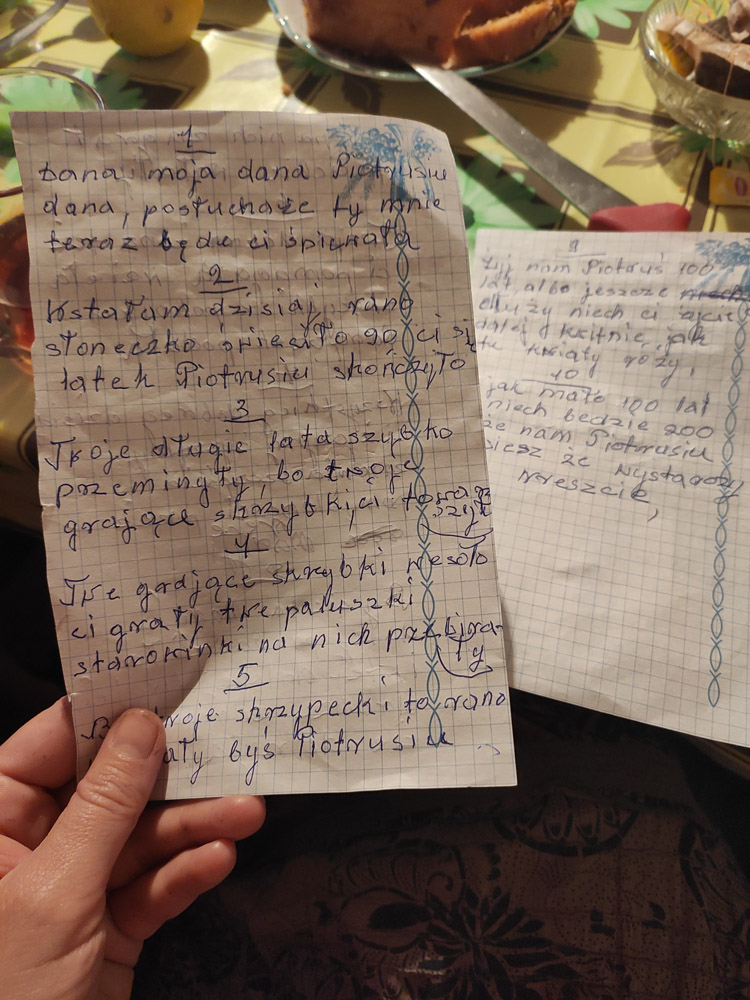 1
Dana moja dana Piotrusiu
dana, posłuchaże ty mnie
teraz będe ci śpiywała
2
Wstałam dzisiaj rano
słoneczko świeciło 90 ci się
latek Piotrusiu skończyło
3
Twoje długie lata szybko
przeminyły, bo twoje
grające skrzybki ci towarzy
szyły
4
Twe grające skrzybki wesoło
ci grały twe paluszki
starowinki na nich przebira-
ły
5
twoje skrzypecki to rano
byś Piotrusiu
9
Żyj nam Piotruś 100
lat albo jeszcze
dłuży niech ci życie
dalej kwitnie, jak
te kwiaty róży,
10
jak mało 100 lat
niech bedzie 200
że nam Piotrusiu
że wystarczy
wreszcie,